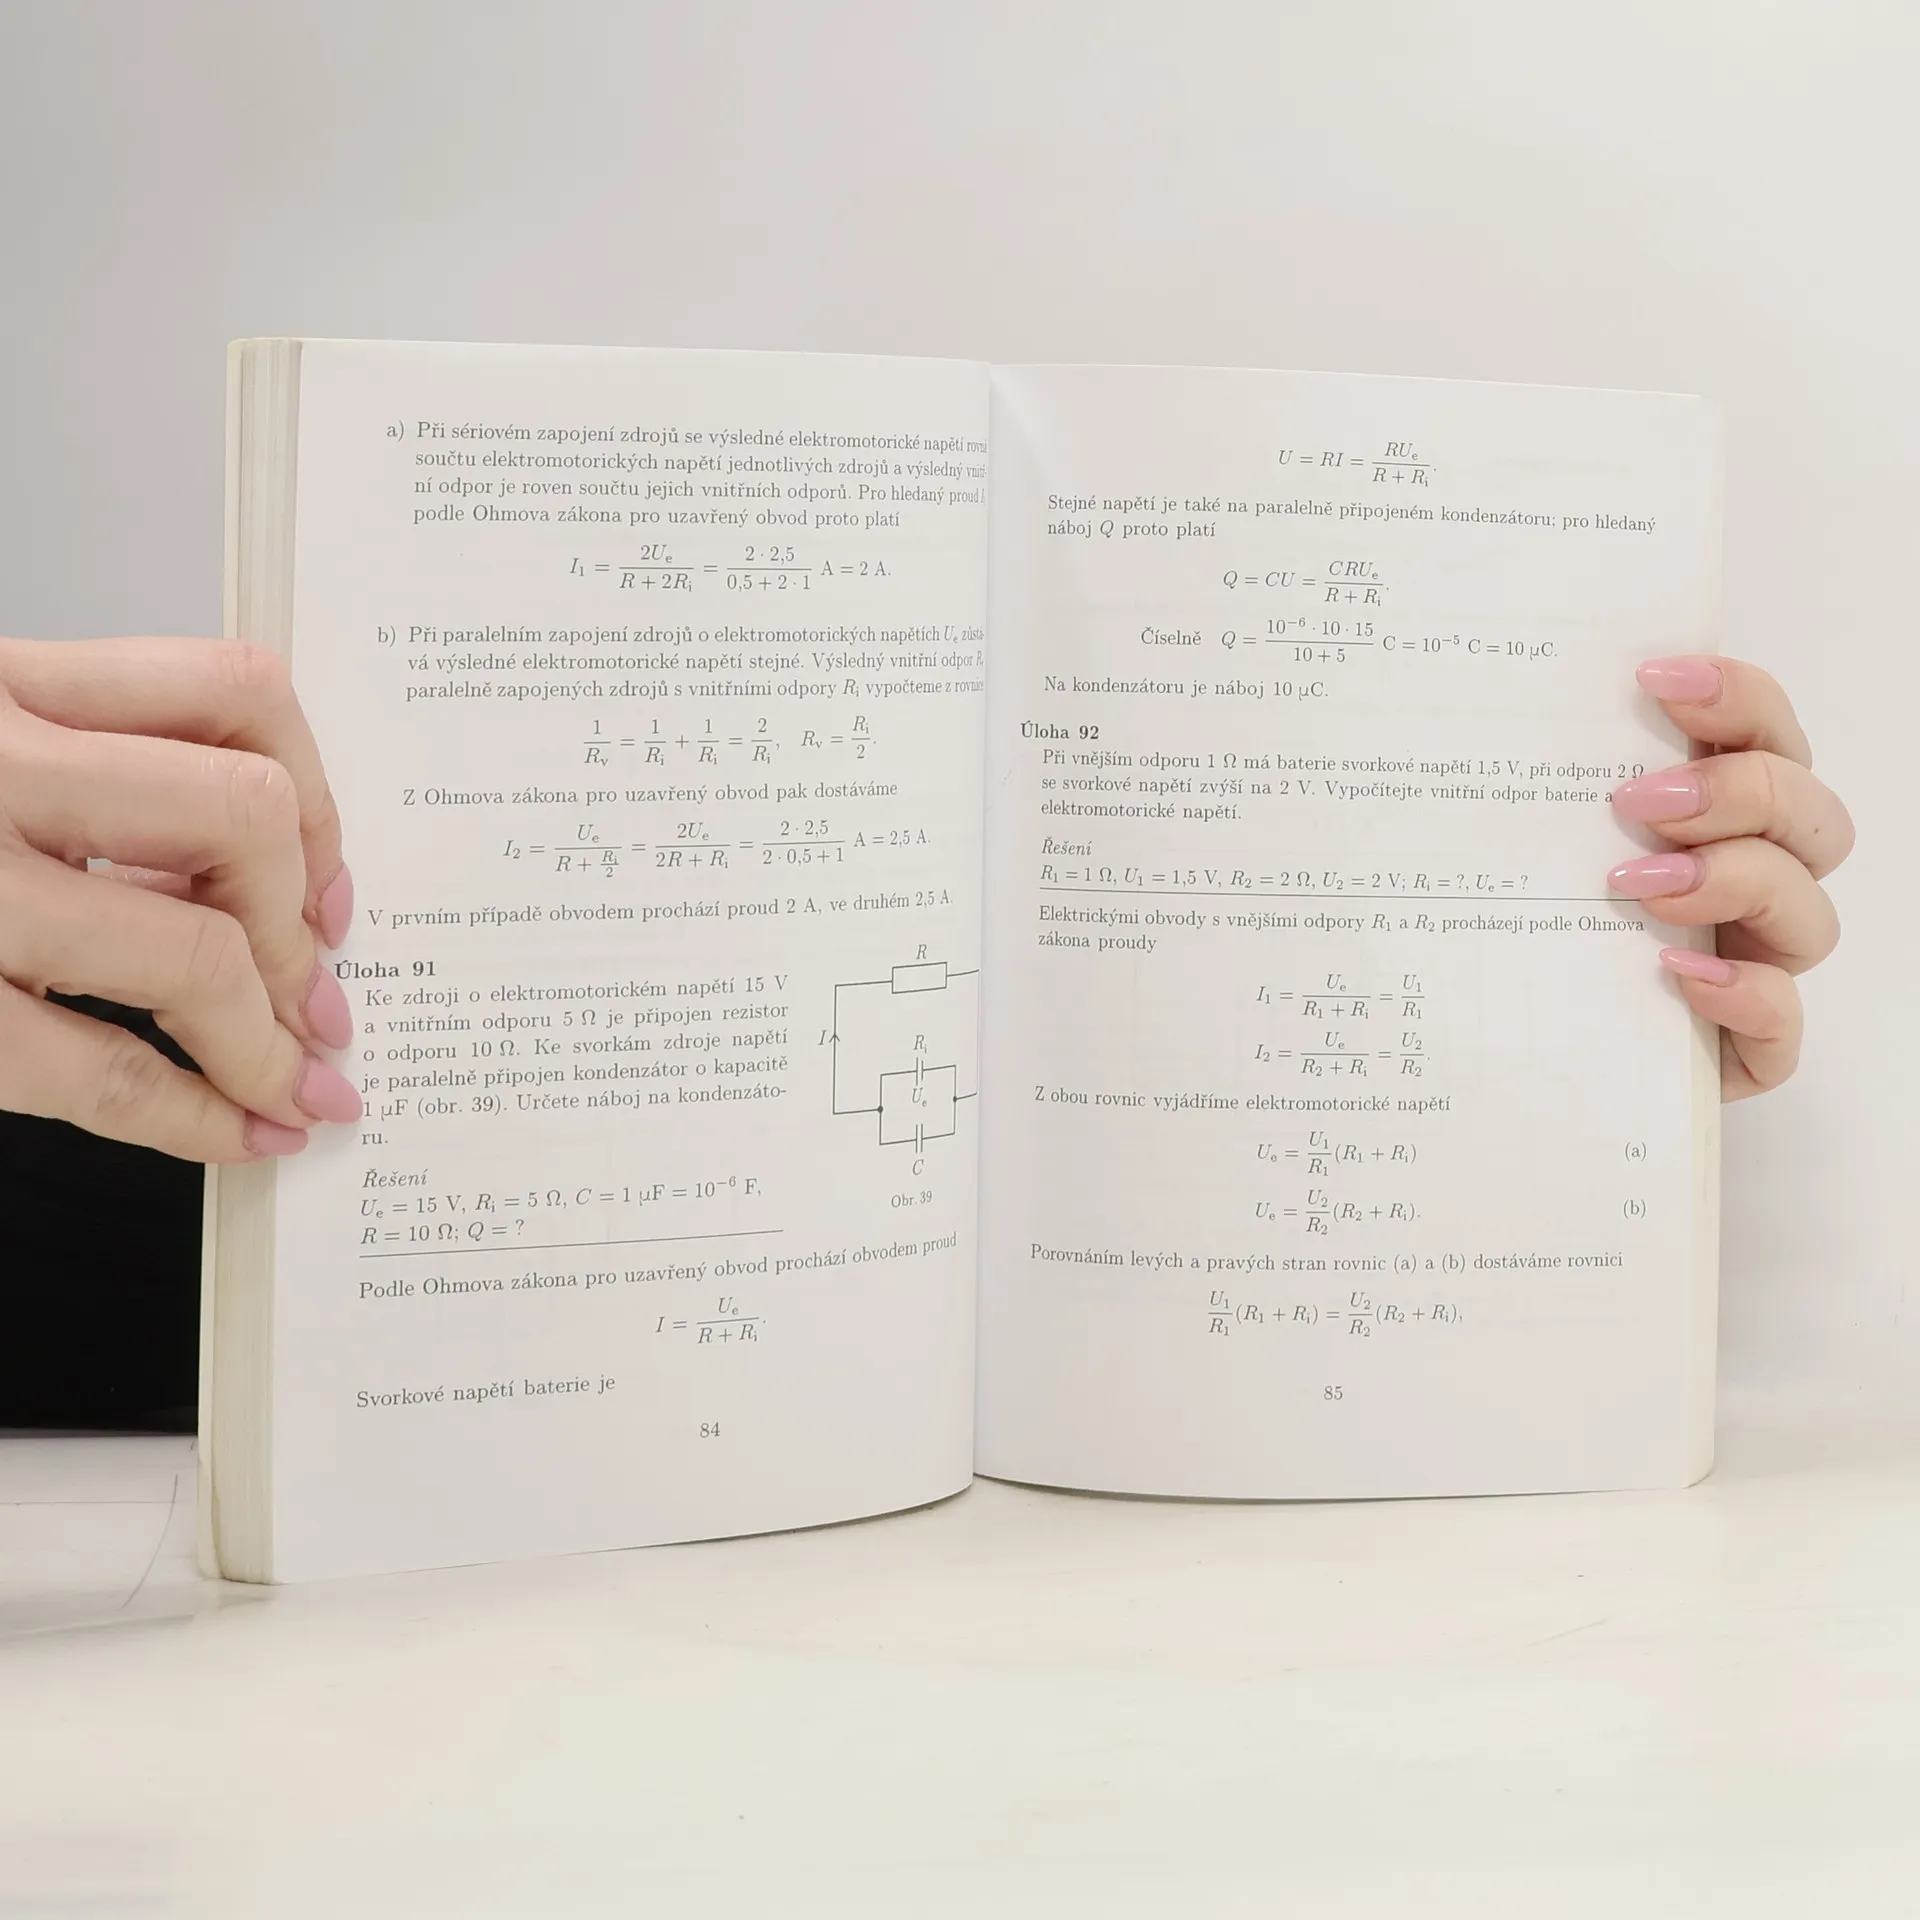 a) Při sériovém zapojení zdrojů se výsledné elektromotorické napětí rovná
součtu elektromotorických napětí jednotlivých zdrojů a výsledný vnitř-
ní odpor je roven součtu jejich vnitřních odporů. Pro hledaný proud
podle Ohmova zákona pro uzavřený obvod proto platí
I₁ = 2Uₑ / (R + 2Rᵢ) = (2 · 2,5) / (0,5 + 2 · 1) A = 2 A.
b) Při paralelním zapojení zdrojů o elektromotorických napětích Uₑ zůstá-
vá výsledné elektromotorické napětí stejné. Výsledný vnitřní odpor Rᵥ
paralelně zapojených zdrojů s vnitřními odpory Rᵢ vypočteme z rovnice
1/Rᵥ = 1/Rᵢ + 1/Rᵢ = 2/Rᵢ, Rᵥ = Rᵢ/2.
Z Ohmova zákona pro uzavřený obvod pak dostáváme
I₂ = Uₑ / (R + Rᵢ/2) = 2Uₑ / (2R + Rᵢ) = (2 · 2,5) / (2 · 0,5 + 1) A = 2,5 A.
V prvním případě obvodem prochází proud 2 A, ve druhém 2,5 A.
Úloha 91
Ke zdroji o elektromotorickém napětí 15 V
a vnitřním odporu 5 Ω je připojen rezistor
o odporu 10 Ω. Ke svorkám zdroje napětí
je paralelně připojen kondenzátor o kapacitě
1 μF (obr. 39). Určete náboj na kondenzáto-
ru.
R
I
Rᵢ
Uₑ
C
Obr. 39
Řešení
Uₑ = 15 V, Rᵢ = 5 Ω, C = 1 μF = 10⁻⁶ F,
R = 10 Ω; Q = ?
Podle Ohmova zákona pro uzavřený obvod prochází obvodem proud
I = Uₑ / (R + Rᵢ).
Svorkové napětí baterie je
84
U = RI = RUₑ / (R + Rᵢ).
Stejné napětí je také na paralelně připojeném kondenzátoru; pro hledaný
náboj Q proto platí
Q = CU = CRUₑ / (R + Rᵢ).
Číselně Q = (10⁻⁶ · 10 · 15) / (10 + 5) C = 10⁻⁵ C = 10 μC.
Na kondenzátoru je náboj 10 μC.
Úloha 92
Při vnějším odporu 1 Ω má baterie svorkové napětí 1,5 V, při odporu 2 Ω
se svorkové napětí zvýší na 2 V. Vypočítejte vnitřní odpor baterie a
elektromotorické napětí.
Řešení
R₁ = 1 Ω, U₁ = 1,5 V, R₂ = 2 Ω, U₂ = 2 V; Rᵢ = ?, Uₑ = ?
Elektrickými obvody s vnějšími odpory R₁ a R₂ procházejí podle Ohmova
zákona proudy
I₁ = Uₑ / (R₁ + Rᵢ) = U₁/R₁
I₂ = Uₑ / (R₂ + Rᵢ) = U₂/R₂.
Z obou rovnic vyjádříme elektromotorické napětí
Uₑ = U₁/R₁ (R₁ + Rᵢ) (a)
Uₑ = U₂/R₂ (R₂ + Rᵢ). (b)
Porovnáním levých a pravých stran rovnic (a) a (b) dostáváme rovnici
U₁/R₁ (R₁ + Rᵢ) = U₂/R₂ (R₂ + Rᵢ),
85